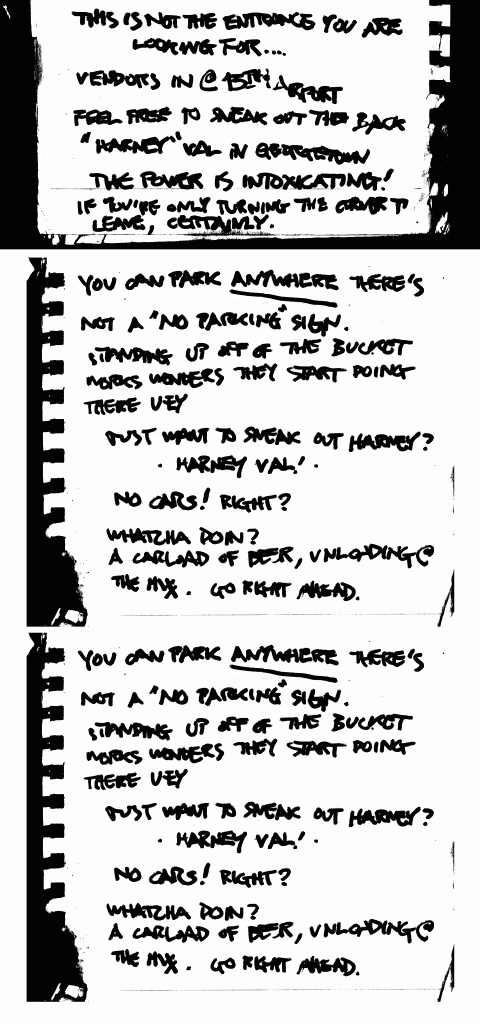 THIS IS NOT THE ENTRANCE YOU ARE
LOOKING FOR....
VENDORS IN @ 15TH AIRPORT
FEEL FREE TO SNEAK OUT THE BACK
"HARNEY" VAL IN GEORGETOWN
THE POWER IS INTOXICATING!
IF YOU'RE ONLY TURNING THE CORNER TO
LEAVE, CERTAINLY.
YOU CAN PARK ANYWHERE THERE'S
NOT A "NO PARKING" SIGN.
STANDING UP OFF OF THE BUCKET
WORKS WONDERS THEY START DOING
THERE
JUST WANT TO SNEAK OUT HARNEY?
· HARNEY VAL! ·
NO CARS! RIGHT?
WHATCHA DOIN?
A CARLOAD OF BEER, UNLOADING @
THE MIX. GO RIGHT AHEAD.
YOU CAN PARK ANYWHERE THERE'S
NOT A "NO PARKING" SIGN.
STANDING UP OFF OF THE BUCKET
WORKS WONDERS THEY START DOING
THERE
JUST WANT TO SNEAK OUT HARNEY?
· HARNEY VAL! ·
NO CARS! RIGHT?
WHATCHA DOIN?
A CARLOAD OF BEER, UNLOADING @
THE MIX. GO RIGHT AHEAD.